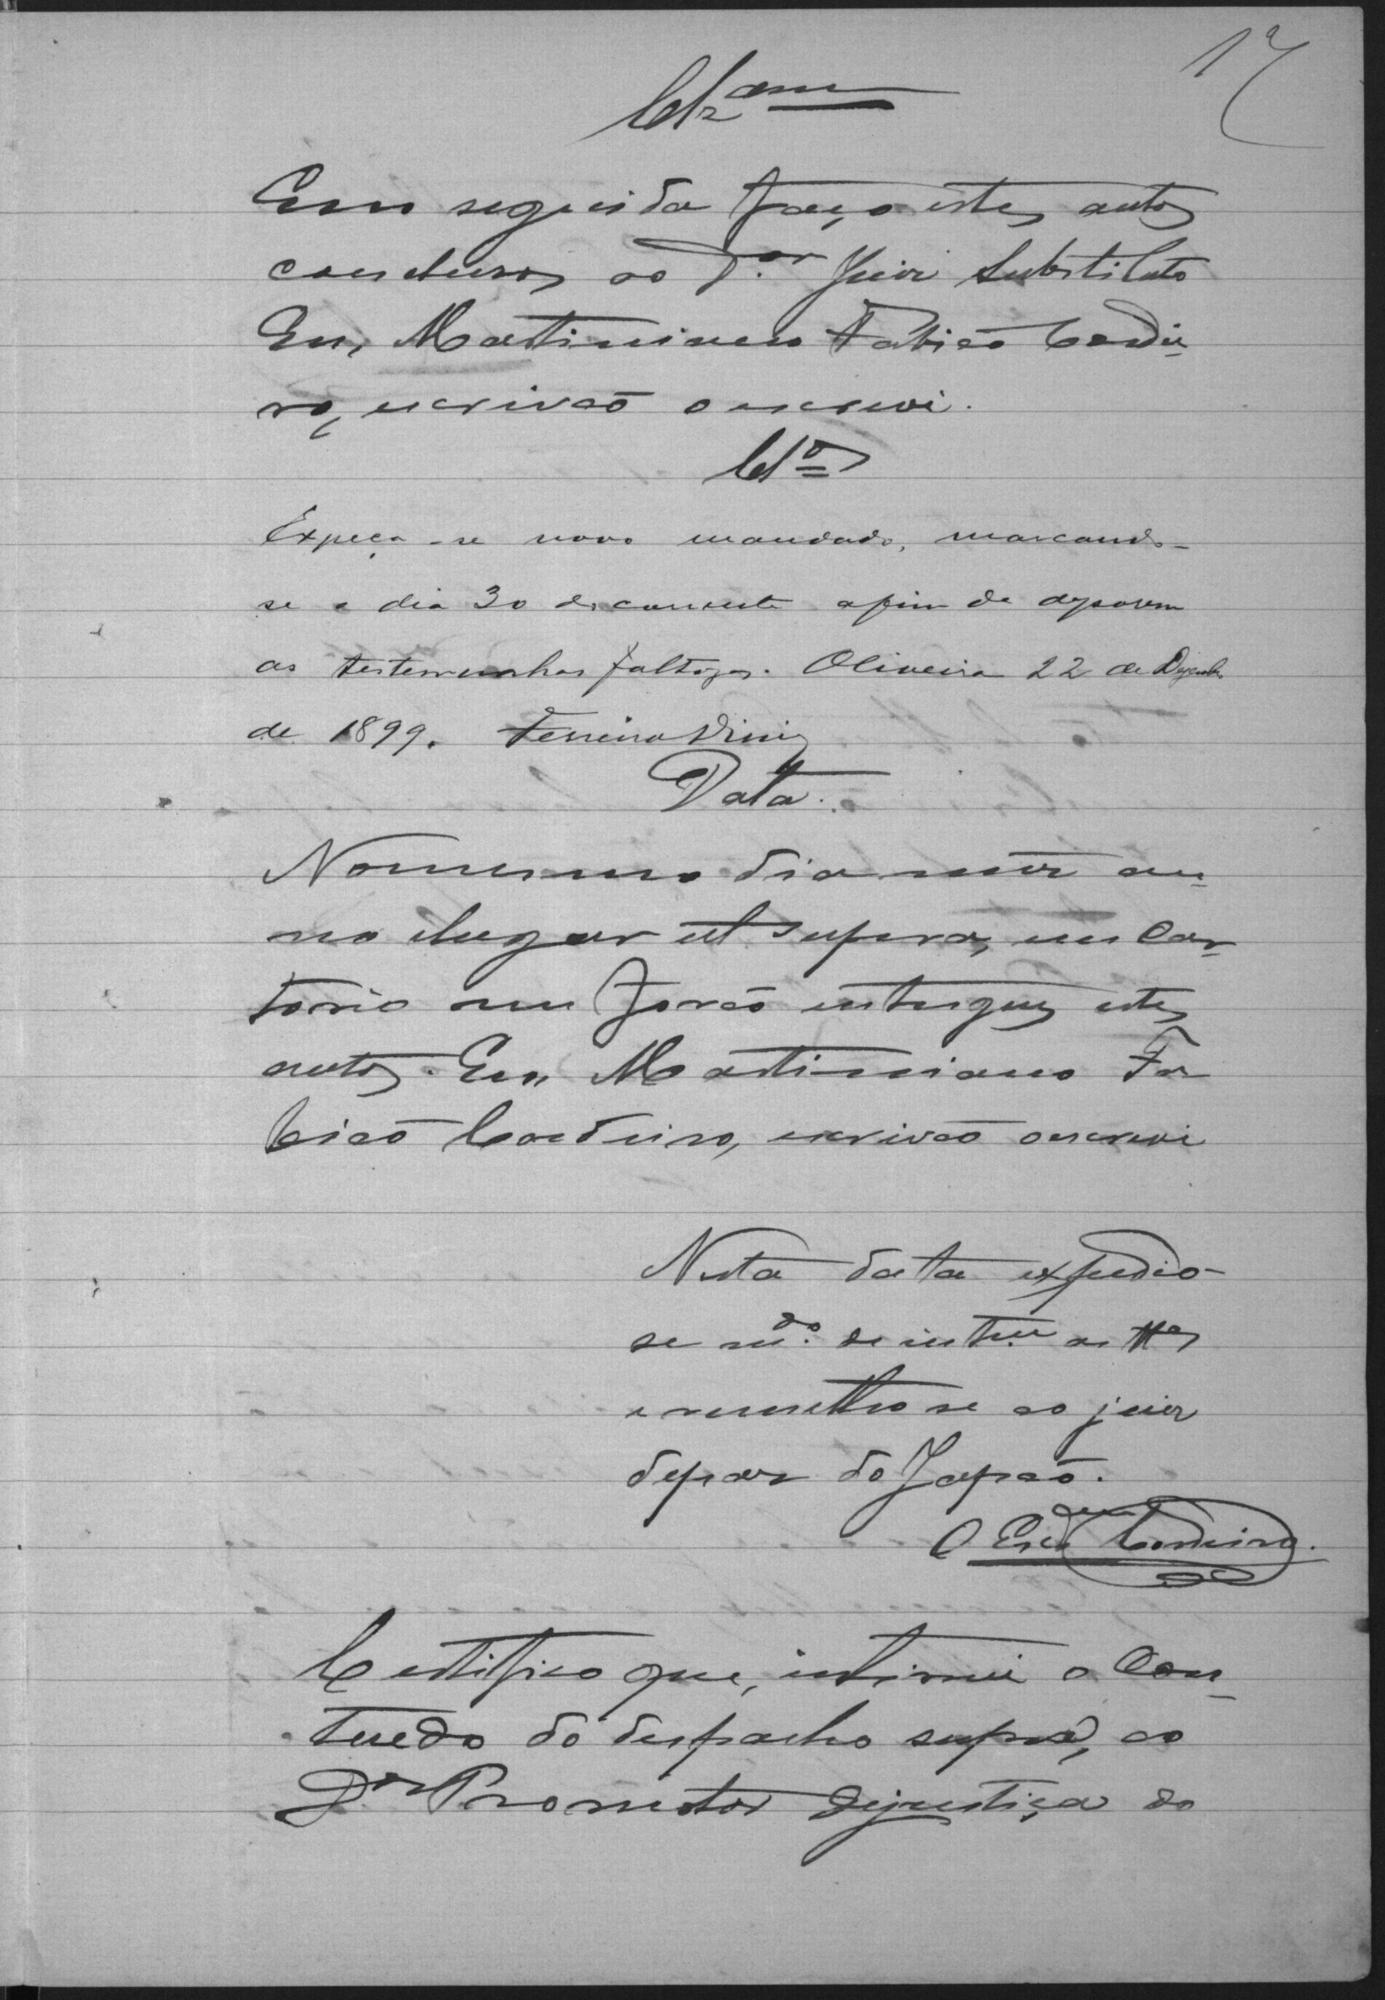 17
Clzam
Em seguida faço estes autos
conclusos ao Dor Juiz Substituto
Eu, Martiniano Fabião Cordei-
ro, escrivão o escrevi.
Clos
Expeça-se novo mandado, marcando-
se o dia 30 do corrente afim de deporem
as testemunhas faltosas. Oliveira 22 de Dezembro
de 1899. Ferreira Diniz
Data.
No mesmo dia mez an-
no e lugar ut supra, em car-
torio me forão entregues estes
autos. Eu, Martiniano Fa
bião Cordeiro, escrivão o escrevi
Nesta data expedio-
se mdo. de intm. as ttas
e remetteo se ao juiz
de paz do Japão.
O Escam Cordeiro.
Certifico que, intimei o con-
teudo do despacho supra, ao
Dor Promotor de justiça do